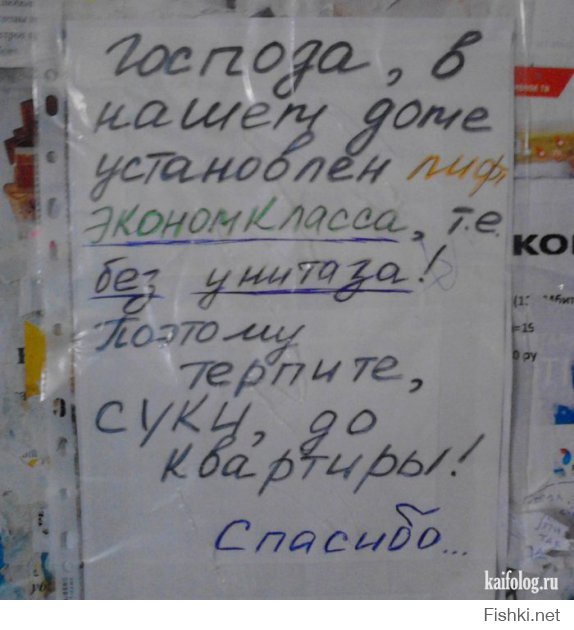 Господа, в
нашем доме
установлен лифт
экономкласса, т.е.
без унитаза!
Поэтому
терпите,
суки, до
квартиры!
Спасибо...
КО
=15
0 ру
kaifolog.ru
Fishki.net